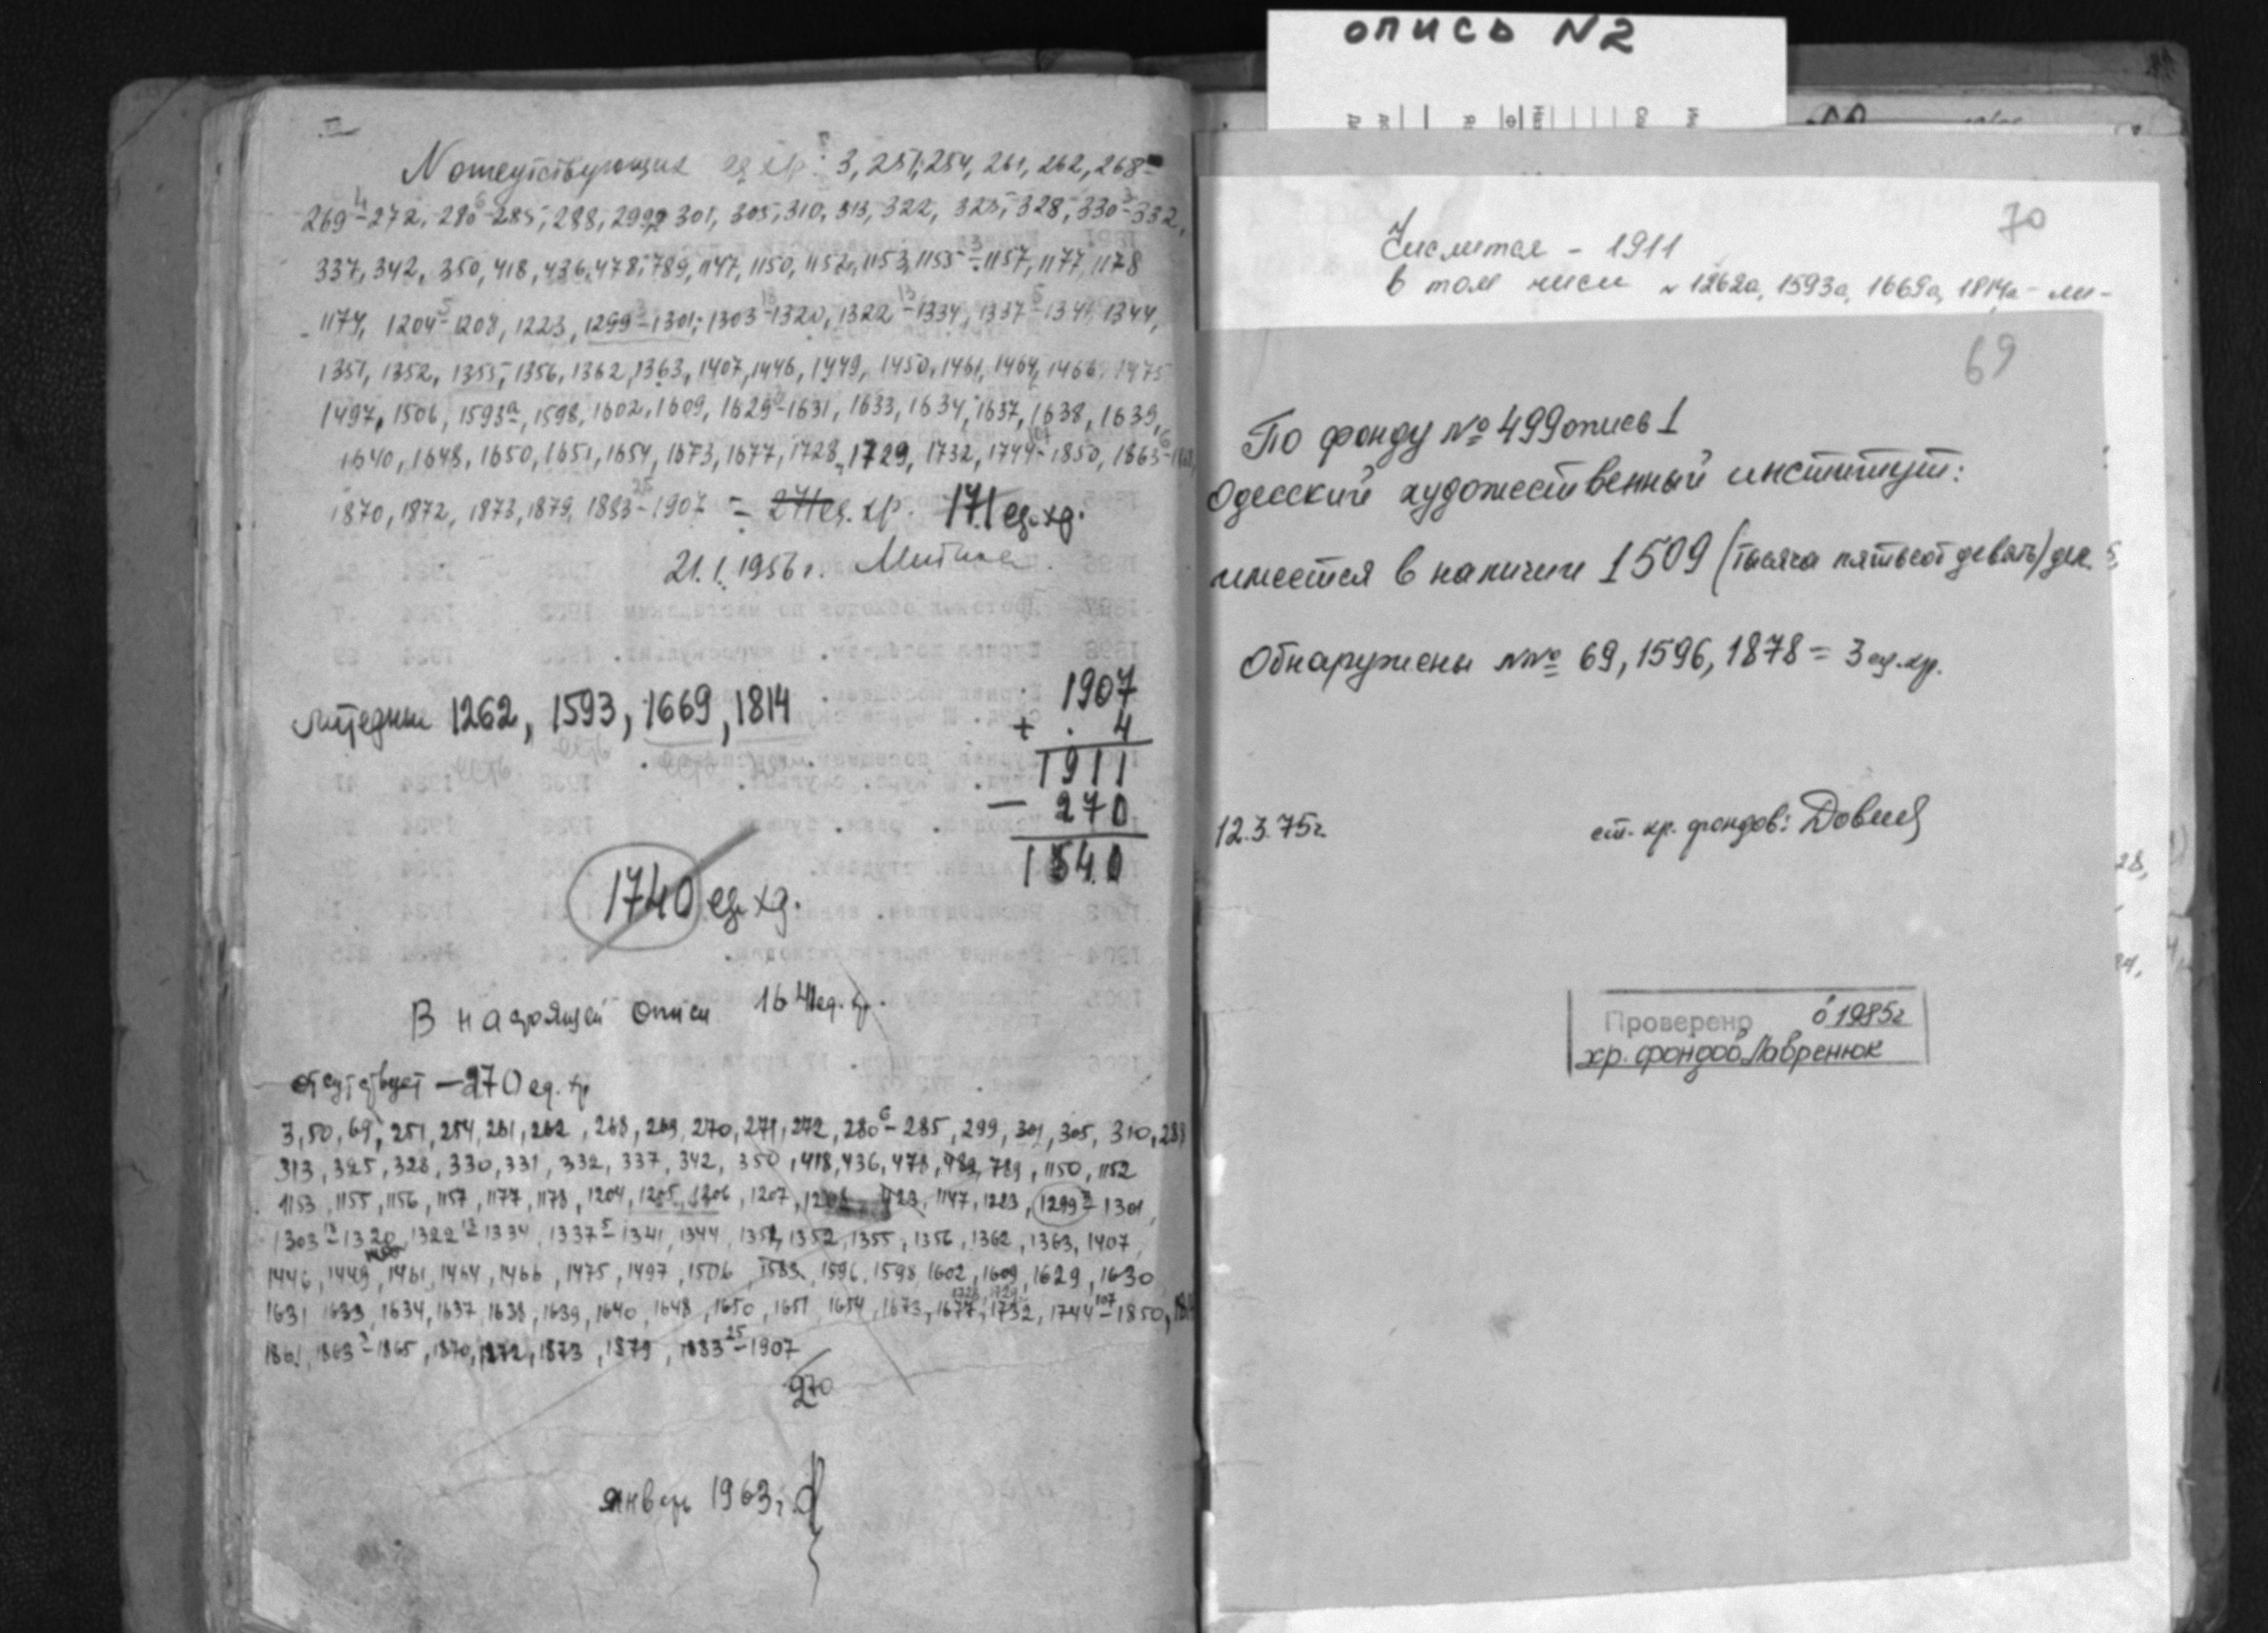 опись N2
N отсутствующих ед хр: 3, 251, 254, 261, 262, 268
269 4– 272, 280 6– 285, 288, 299, 301, 305, 310, 313, 322, 325, 328, 330 3– 332,
337, 342, 350, 418, 436, 478, 789, 1147, 1150, 1152, 1153, 1155 3– 1157, 1177, 1178
1174, 1204 5– 1208, 1223, 1299 3– 1301, 1303 18– 1320, 1322 13– 1334, 1337 5– 1341, 1344,
1351, 1352, 1355, 1356, 1362, 1363, 1407, 1446, 1449, 1450, 1461, 1464, 1466, 1475
1497, 1506, 1593а, 1598, 1602, 1609, 1629 3– 1631, 1633, 1634, 1637, 1638, 1639,
1640, 1648, 1650, 1651, 1654, 1673, 1677, 1728, 1729, 1732, 1744 107– 1850, 1863 6–
1870, 1872, 1873, 1879, 1883 25– 1907 = 271 ед. хр. 171 ед. хр.
21.1.1956г.
литерные 1262, 1593, 1669, 1814
есть есть
1907
+ 4
1911
– 270
1640
1740 ед. хр.
В настоящей описи 1641 ед. хр.
отсутствует – 270 ед. хр
3, 50, 69, 251, 254, 261, 262, 268, 269, 270, 271, 272, 280 6– 285, 299, 301, 305, 310, 288
313, 325, 328, 330, 331, 332, 337, 342, 350, 418, 436, 478, 789, 1150, 1152
1153, 1155, 1156, 1157, 1177, 1178, 1204, 1205, 1206, 1207, 1147, 1223, 1299 3– 1301,
1303 18– 1320, 1322 13– 1334, 1337 5– 1341, 1344, 1351, 1352, 1355, 1356, 1362, 1363, 1407,
1446, 1449, 1461, 1464, 1466, 1475, 1497, 1506, 1593, 1596, 1598, 1602, 1609, 1629, 1630
1631, 1633, 1634, 1637, 1638, 1639, 1640, 1648, 1650, 1651, 1654, 1673, 1677, 1728, 1729, 1732, 1744 107– 1850,
1861, 1863 3– 1865, 1870, 1872, 1873, 1879, 1883 25– 1907
270
январь 1963г.
70
Числится – 1911
в том числе N 1262а, 1593а, 1669а, 1814а – ли-
69
По фонду № 499 опись 1
Одесский художественный институт:
имеется в наличии 1509 (тысяча пятьсот девять) дел.
Обнаружены №№ 69, 1596, 1878 = 3 ед. хр.
12.3.75г. ст. хр. фондов:
Проверено в 1985г
хр. фондов Лавренюк